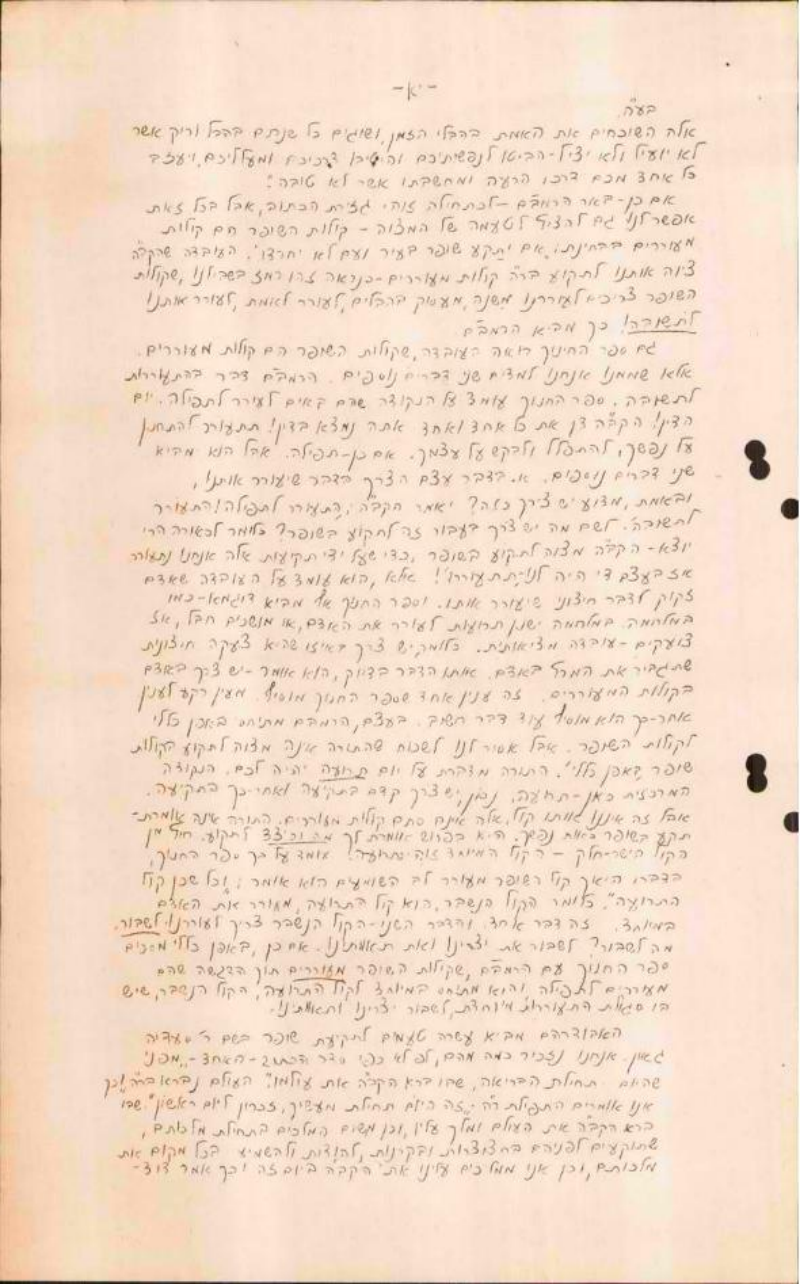 -יא-
בעה"י
אלה השוכחים את האמת בהבלי הזמן, ושוגים כל שנתם בהבל וריק אשר
לא יועיל ולא יציל-הביטו לנפשותיכם והיטיבו דרכיכם ומעלליכם, ויעזב
כל אחד מכם דרכו הרעה ומחשבתו אשר לא טובה".
אם כן-באר הרמב"ם - לכתחילה זוהי גזירת הכתוב, אבל בכל זאת
אפשר לנו גם להציף לטעמה של המצוה - קולות השופר הם קולות
מעוררים בבחינת: "אם יתקע שופר בעיר ועם לא יחרדו". העובדה שהקב"ה
ציוה אותנו לתקוע בר"ה קולות מעוררים-כנראה זהו רמז בשבילנו, שקולות
השופר צריכים לעוררנו משנה, מעסוק בהבלים, לעורר לאמת, לעורר אותנו
לתשובה! כך מביא הרמב"ם.
גם ספר החינוך רואה העובדה, שקולות השופר הם קולות מעוררים.
אלא שממנו אנחנו למדים שני דברים נוספים. הרמב"ם דבר בהתעוררות
לתשובה. ספר החנוך עומד על הנקודה שהם באים לעורר לתפילה. יום
הדין! הקב"ה דן את כל אחד ואחד אתה נמצא בדין! תתעורר להתחנן
על נפשך, להתפלל ולבקש על עצמך. אם כן-תפילה. אבל הוא מביא
שני דברים נוספים. א. בדבר עצם הצרך בדבר שיעורר אותנו,
ובאמת, מדוע יש צרך כזה? יאמר הקב"ה: התעורר לתפילה! התעורר
לתשובה. לשם מה יש צרך בעבור זה לתקוע בשופר? כלומר לכאורה הרי
יוצא- הקב"ה מצוה לתקוע בשופר, כדי שעל ידי תקיעות אלה אנחנו נתעורר
אז בעצם די היה לנו-"תתעוררו"! אלא, הוא עומד על העובדה שאדם
זקוק לדבר חיצוני שיעורר אותו. וספר החנוך אף מביא דוגמא-כמו
במלחמה. במלחמה ישנן תרועות לעורר את האדם, או מושכים חבל, אז
צועקים -עובדה מציאותית. כלומר, יש צרך באיזו שהיא צעקה חיצונית
שתגביר את המרץ באדם. אותו הדבר בדיוק, הוא אומר -יש צרך באדם
בקולות המעוררים. זה ענין אחד שספר החנוך מוסיף. מעין רקע לענין
אחר-כך הוא מוסיף עוד דבר חשוב. בעצם, הרמב"ם מתיחס באופן כללי
לקולות השופר. אבל אסור לנו לשכוח שהתורה אינה מצוה לתקוע בקולות
שופר באופן כללי. התורה מדברת על יום תרועה יהיה לכם. הנקודה
המרכזית כאן-תרועה. נכון, יש צרך קדם בתקיעה ואחר-כך בתקיעה.
אבל זה איננו אותו קול, אלה אינם סתם קולות מעוררים. התורה אינה אומרת-
תקע בשופר כאות נפשך. היא בפרוש אומרת לך מה וכיצד לתקוע. חוץ מן
הקול הישר-חלק - הקול המיוחד זוהי תרועה. עומד על כך ספר החנוך,
בדברו היאך קול השופר מעורר לב השומעים הוא אומר: "וכל שכן קול
התרועה". כלומר הקול הנשבר, הוא קול התרועה, מעורר את האדם
במיוחד. זה דבר אחד. והדבר השני-הקול הנשבר צריך לעוררנו לשבור.
מה לשבור? לשבור את יצרינו ואת תאוותינו. אם כן, באופן כללי מסכים
ספר החנוך עם הרמב"ם, שקולות השופר מעוררים תוך הדגשה שהם
מעוררים לתפילה. והוא מתיחס במיוחד לקול התרועה, הקול הנשבר, שיש
בו סגולת התעוררות מיוחדת, לשבור יצרינו ותאוותינו.
האבודרהם מביא עשרה טעמים לתקיעת שופר בשם ר' סעדיה
גאון. אנחנו נזכיר כמה מהם, לפ לא כפי סדר הכתוב - האחד - "מפני
שהיום תחילת הבריאה, שבו ברא הקב"ה את עולמו". העולם נברא בר"ה וכך
אנו אומרים התפילת ר"ה -"זה היום תחילת מעשיך, זכרון ליום ראשון". "שבו
ברא הקב"ה את העולם ומלך עליו, וכן משום המלכים בתחילת מלכותם,
שתוקעים לפניהם בחצוצרות ובקרנות, להודות ולהשמיע בכל מקום את
מלכותם, וכן אנו ממליכים עלינו את הקב"ה ביום זה וכך אמר דוד-